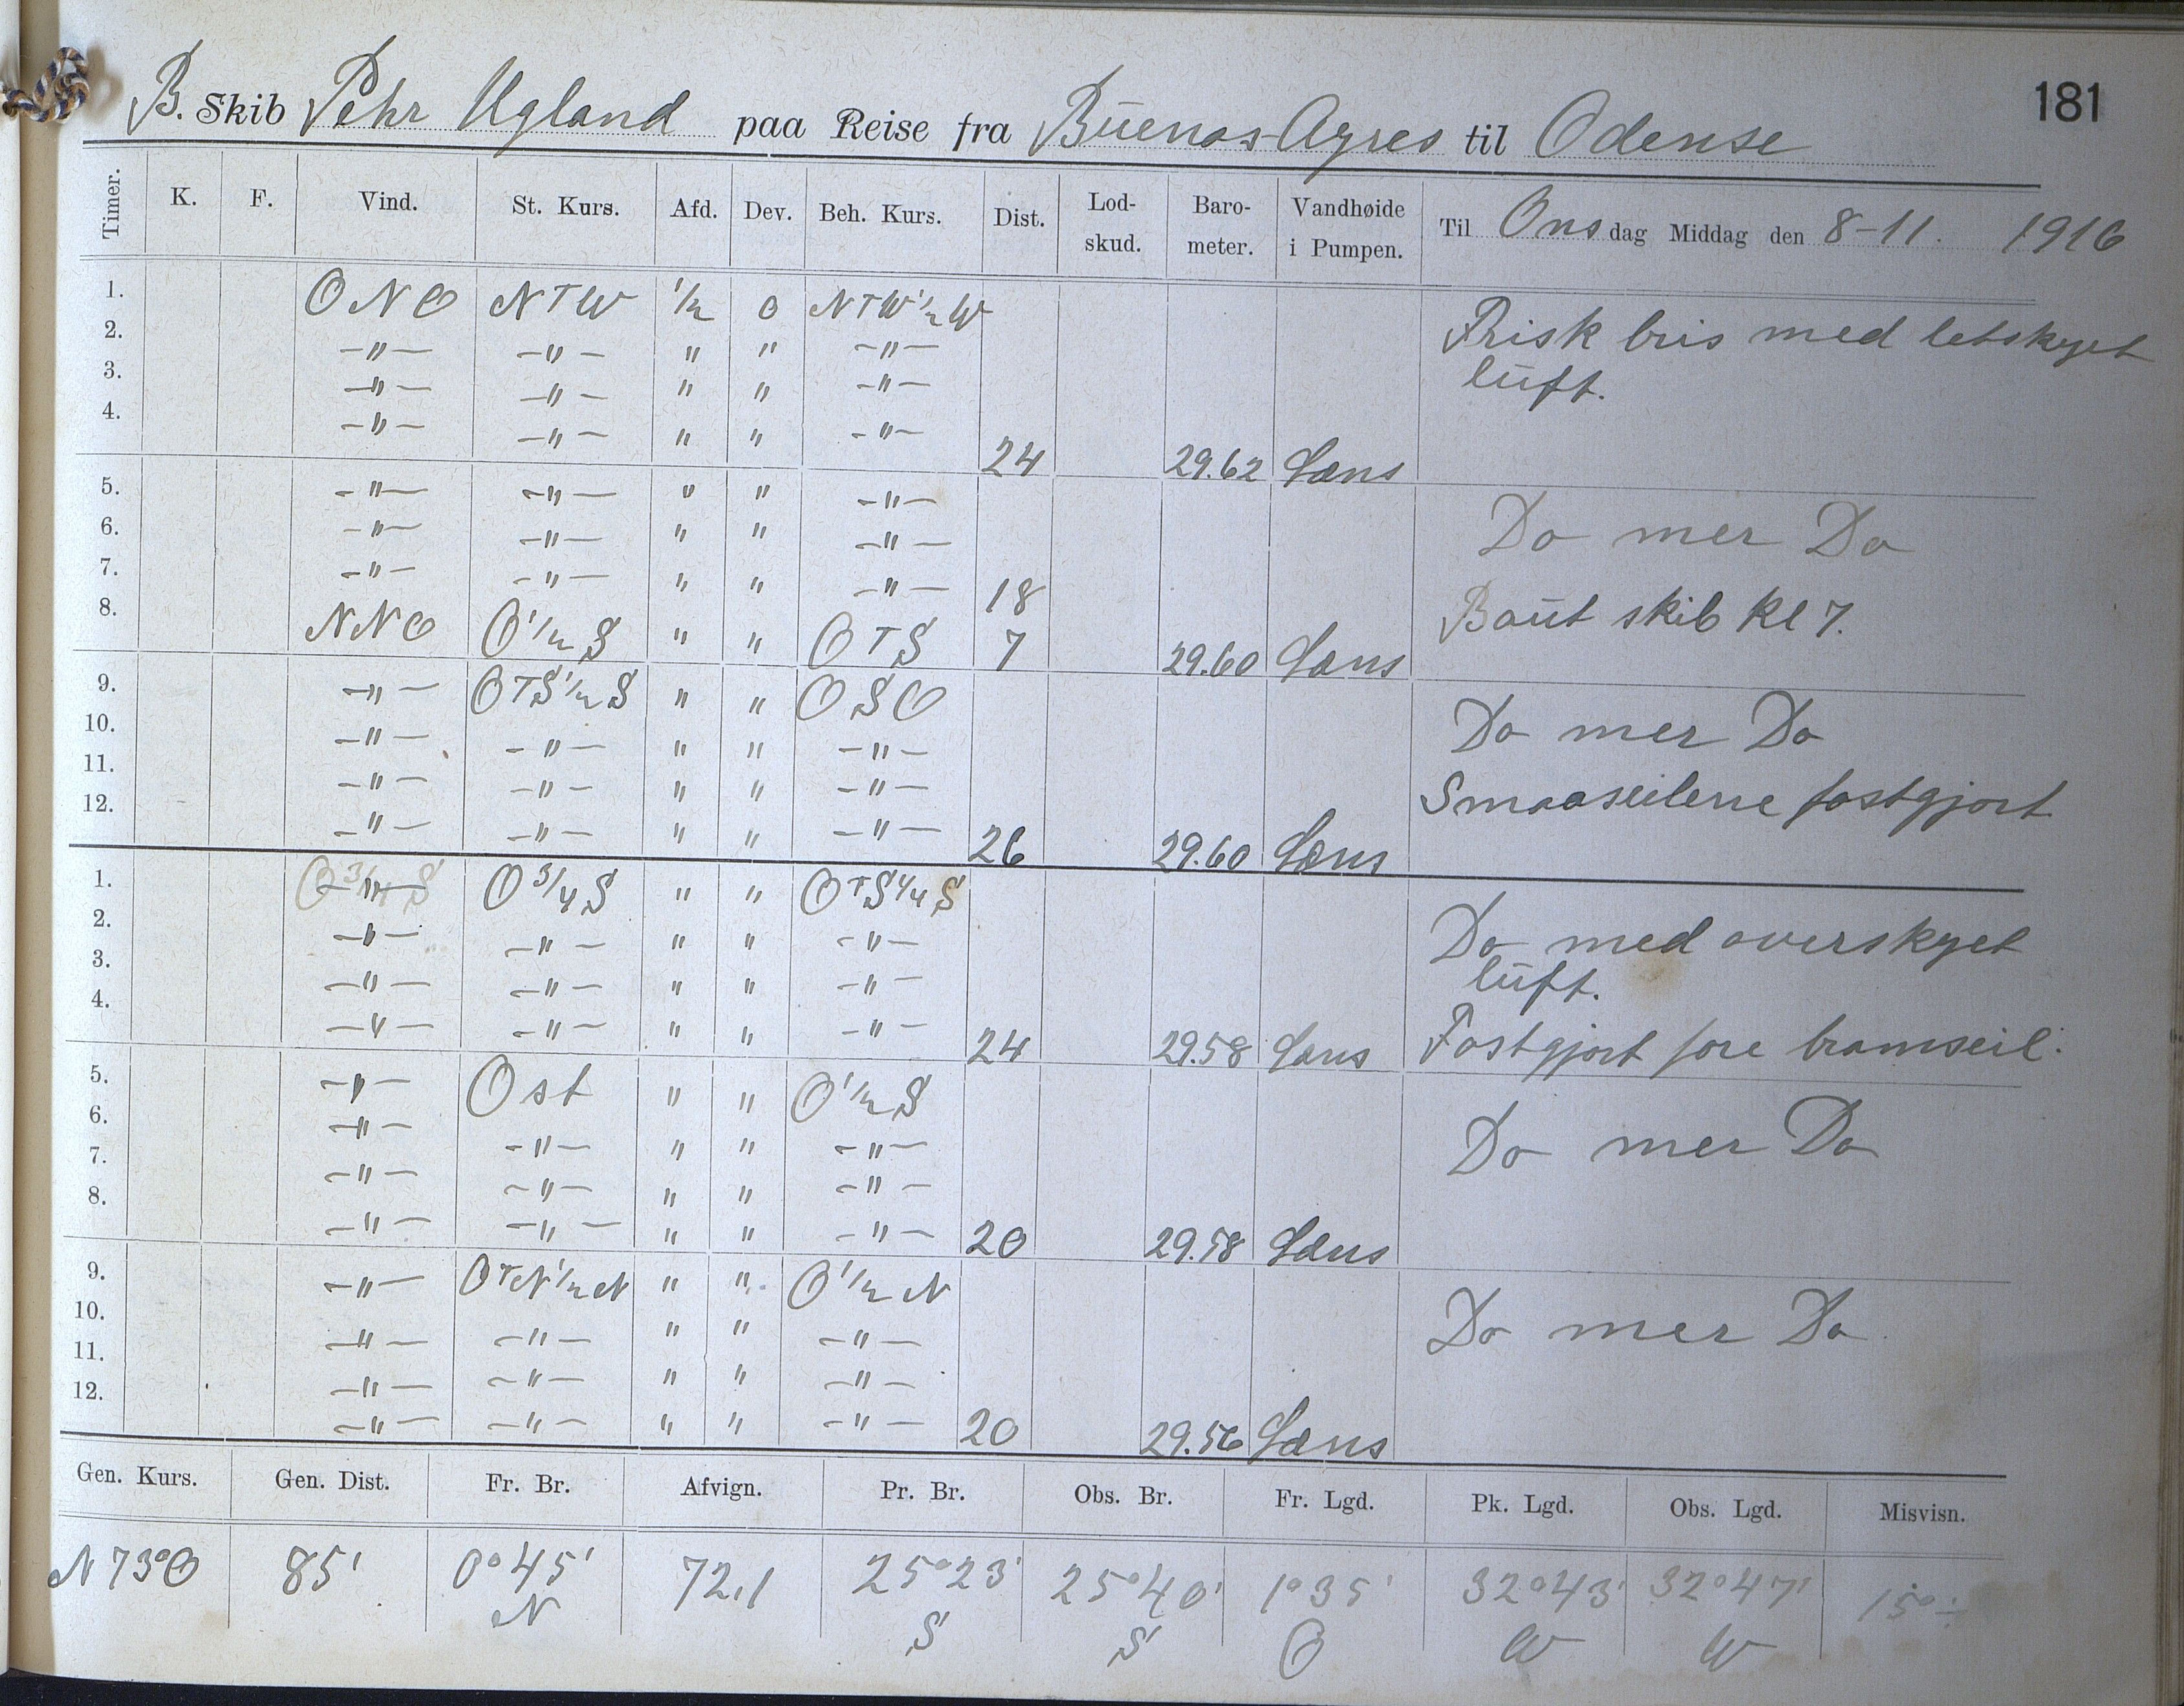 181
B. Skib Pehr Ugland paa Reise fra Buenos-Ayres til Odense
Timer. K. F. Vind. St. Kurs. Afd. Dev. Beh. Kurs. Dist. Lod-skud. Baro-meter. Vandhøide i Pumpen. Til Onsdag Middag den 8-11. 1916
1. ONO NTW 1/2 0 NTW 1/2 W Frisk bris med letskyet
2. -"- -"- " " -"- luft.
3. -"- -"- " " -"-
4. -"- -"- " " -"- 24 29.62 Læns
5. -"- -"- " " -"- Do mer Do
6. -"- -"- " " -"-
7. -"- -"- " " -"- 18 Baut skib Kl 7.
8. NNO O 1/2 S " " OTS 7 29.60 Læns
9. -"- OTS 1/2 S " " OSO Do mer Do
10. -"- -"- " " -"-
11. -"- -"- " " -"- Smaaseilene fastgjort
12. -"- -"- " " -"- 26 29.60 Læns
1. -"- O 3/4 S " " OTS 1/4 S Do med overskyet
2. -"- -"- " " -"- luft.
3. -"- -"- " " -"-
4. -"- -"- " " -"- 24 29.58 Læns Fastgjort fore bramseil.
5. -"- Ost " " O 1/2 S Do mer Do
6. -"- -"- " " -"-
7. -"- -"- " " -"-
8. -"- -"- " " -"- 20 29.58 Læns
9. -"- OTN 1/2 N " " O 1/2 N Do mer Do
10. -"- -"- " " -"-
11. -"- -"- " " -"-
12. -"- -"- " " -"- 20 29.56 Læns
Gen. Kurs. Gen. Dist. Fr. Br. Afvign. Pr. Br. Obs. Br. Fr. Lgd. Pk. Lgd. Obs. Lgd. Misvisn.
N 73° O 85' 0° 45' 72,1 25° 23' 25° 40' 1° 35' 32° 43' 32° 47' 15° ÷
N S S O W W